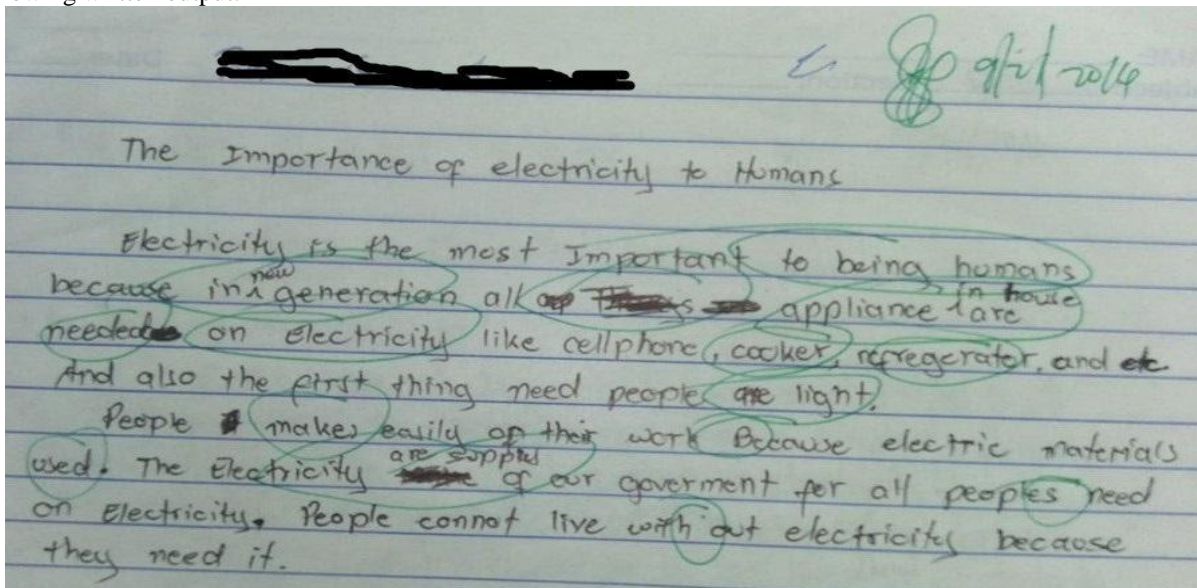 9/2/2014
The Importance of electricity to Humans
Electricity is the most Important to being humans
because in new generation all appliance in house are
needed on Electricity like cellphone, cooker, refregerator, and etc
And also the first thing need people are light.
People makes easily of their work Because electric materials
used. The Electricity are supply of our goverment for all peoples need
on Electricity. People connot live with out electricity because
they need it.